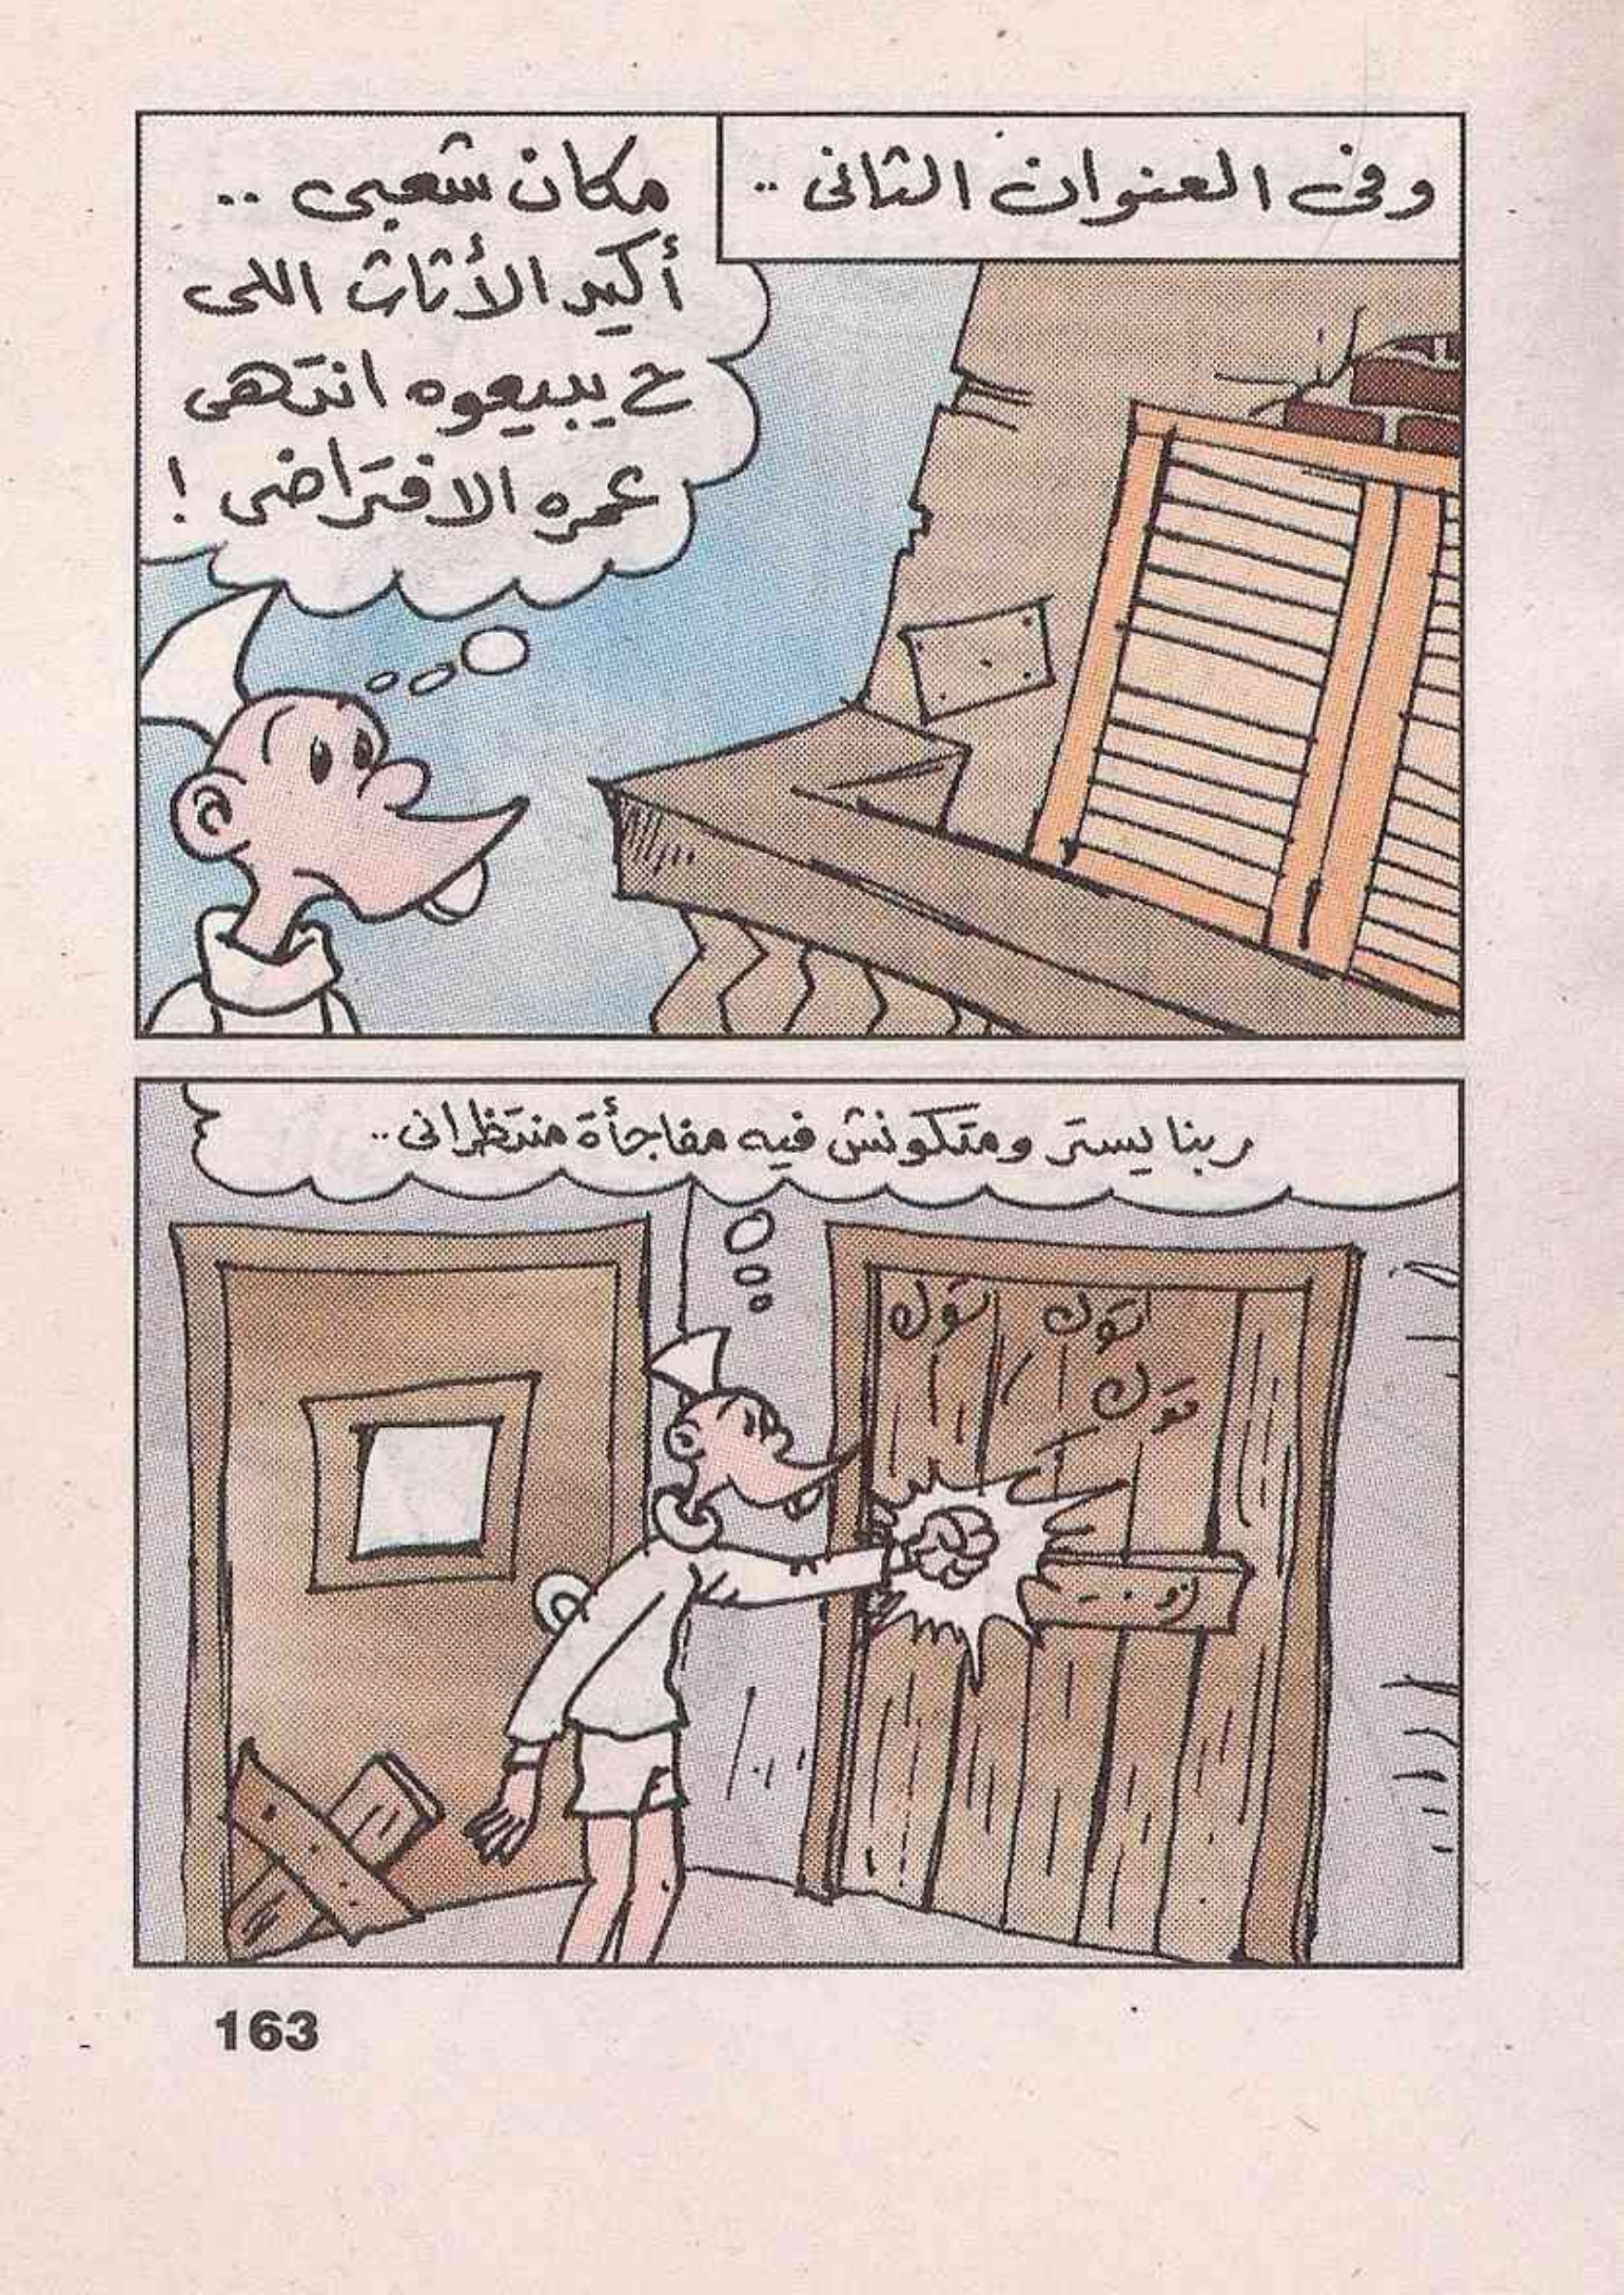 وفى العنوان الثانى ..
مكان شعبى ..
أكيد الأثاث اللى
ح يبيعوه انتهى
عمره الافتراضى !
ربنا يستر ومتكونش فيه مفاجأة منتظرانى ..
توك توك
توك
163